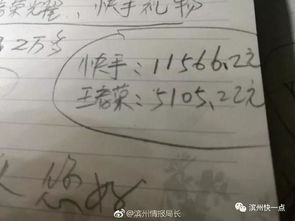 荣耀, 快手礼物
2万多
快手:11566.2元
王者荣:5105.22元
您好
@滨州情报局长
滨州快一点